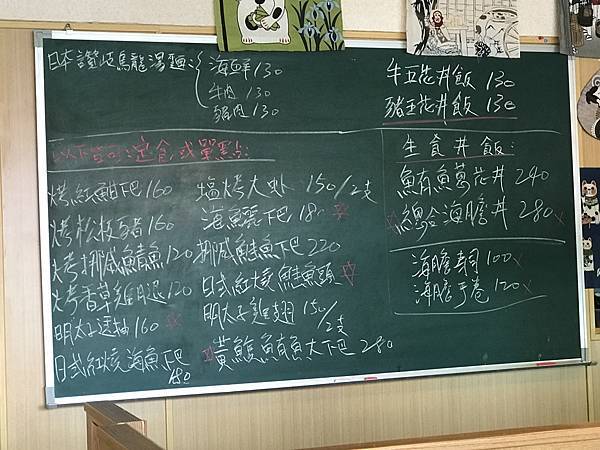 日本讚岐烏龍湯麵:
海鮮130
牛肉130
豬肉130
牛五花丼飯 130
豬五花丼飯 130
以下皆可:定食或單點:
烤紅魽下巴160
烤松板豬160
烤挪威鯖魚120
烤香草雞腿120
明太子透抽160
日式紅燒海魚下巴
180
塩烤大蝦 150/2支
海鱺下巴180
挪威鮭魚下巴220
日式紅燒鮭魚頭
明太子雞翅150/2支
黃鰭鮪魚大下巴 280
生食丼飯:
鮪魚蔥花丼240
總合海膽丼280
海膽壽司100
海膽手卷120